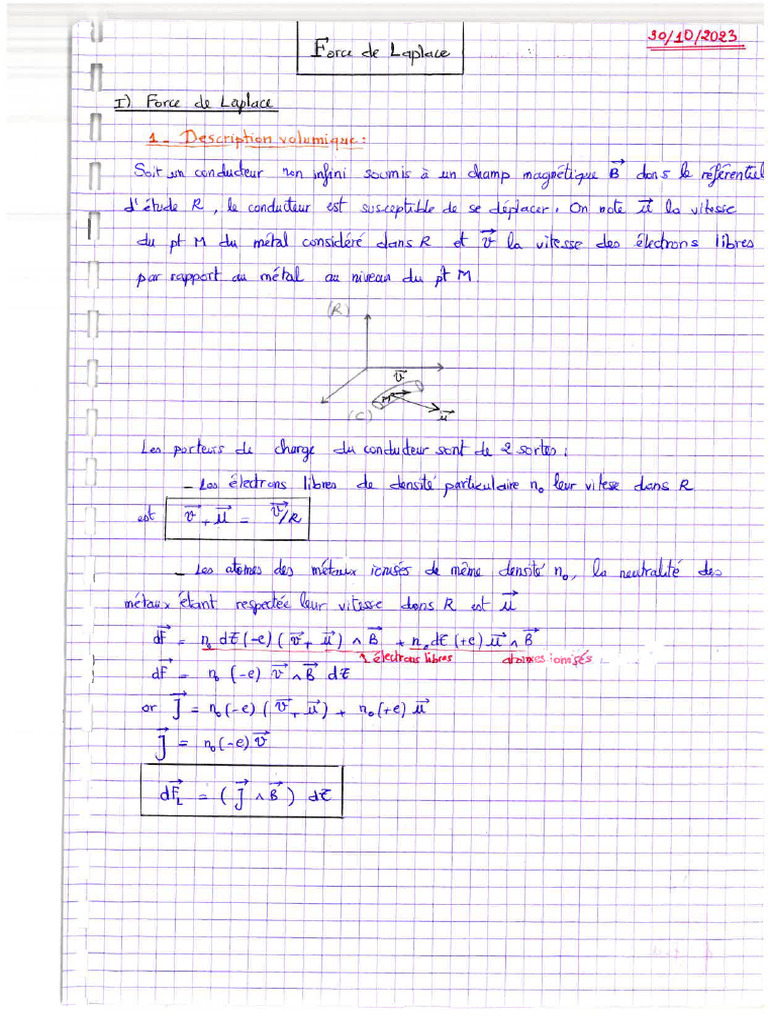 Force de Laplace
30/10/2023
I) Force de Laplace
1_ Description volumique :
Soit un conducteur non infini soumis à un champ magnétique B⃗ dans le référentiel
d'étude R, le conducteur est susceptible de se déplacer. On note u⃗ la vitesse
du pt M du métal considéré dans R et v⃗ la vitesse des électrons libres
par rapport au métal au niveau du pt M
(R)
v⃗
M
(C)
u⃗
Les porteurs de charge du conducteur sont de 2 sortes :
_ Les électrons libres de densité particulaire n₀ leur vitesse dans R
est v⃗ + u⃗ = v⃗/R
_ Les atomes des métaux ionisés de même densité n₀, la neutralité des
métaux étant respectée leur vitesse dans R est u⃗
dF⃗ = n₀ dτ (-e) (v⃗ + u⃗) ∧ B⃗ + n₀ dτ (+e) u⃗ ∧ B⃗
électrons libres atomes ionisés
dF⃗ = n₀ (-e) v⃗ ∧ B⃗ dτ
or J⃗ = n₀ (-e) (v⃗ + u⃗) + n₀ (+e) u⃗
J⃗ = n₀ (-e) v⃗
dF⃗L = (J⃗ ∧ B⃗) dτ